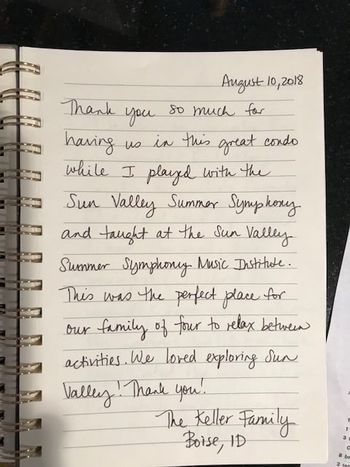 August 10, 2018
Thank you so much for
having us in this great condo
while I played with the
Sun Valley Summer Symphony
and taught at the Sun Valley
Summer Symphony Music Institute.
This was the perfect place for
our family of four to relax between
activities. We loved exploring Sun
Valley! Thank you!
The Keller Family
Boise, ID